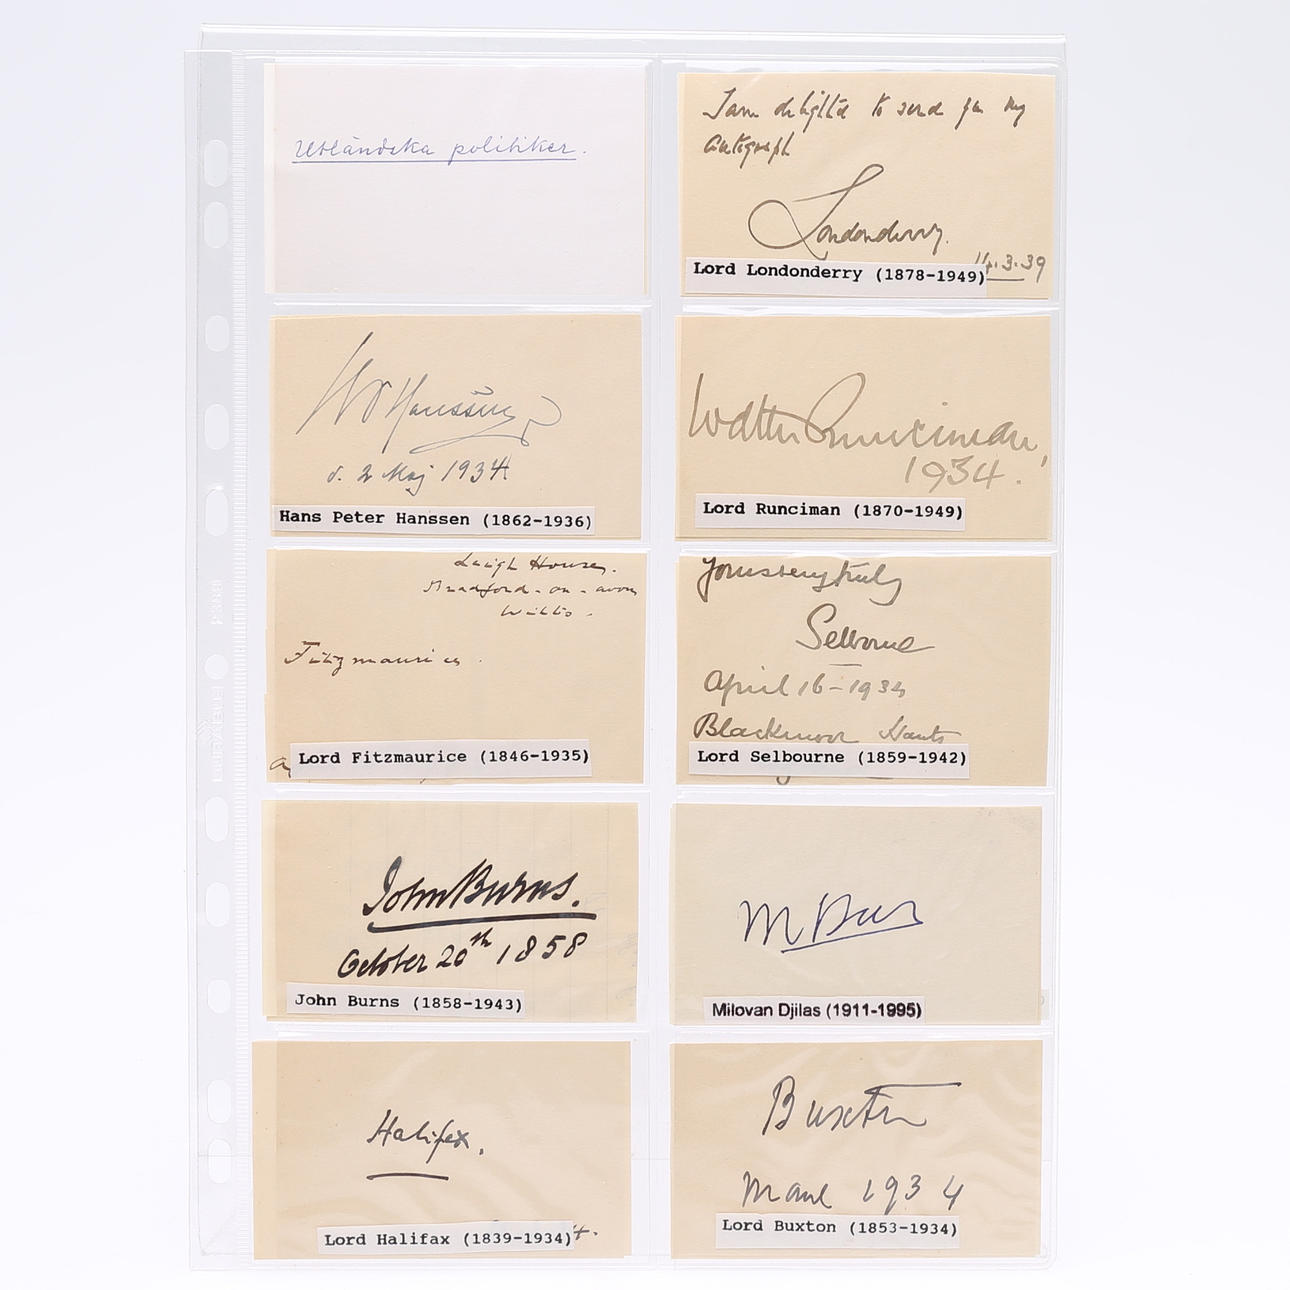 Utländska politiker.
I am delighted to send you my
autograph
Londonderry.
14.3.39
Lord Londonderry (1878-1949)
HP Hanssen
d. 2 Maj 1934
Hans Peter Hanssen (1862-1936)
Walter Runciman,
1934.
Lord Runciman (1870-1949)
Leigh House,
Bradford-on-avon
Wilts.
Fitzmaurice.
Lord Fitzmaurice (1846-1935)
Yours very truly
Selborne
April 16-1934
Blackmoor Hants
Lord Selbourne (1859-1942)
John Burns.
October 20th 1858
John Burns (1858-1943)
Milovan Djilas (1911-1995)
Halifax.
4.
Lord Halifax (1839-1934)
Buxton
1934
Lord Buxton (1853-1934)